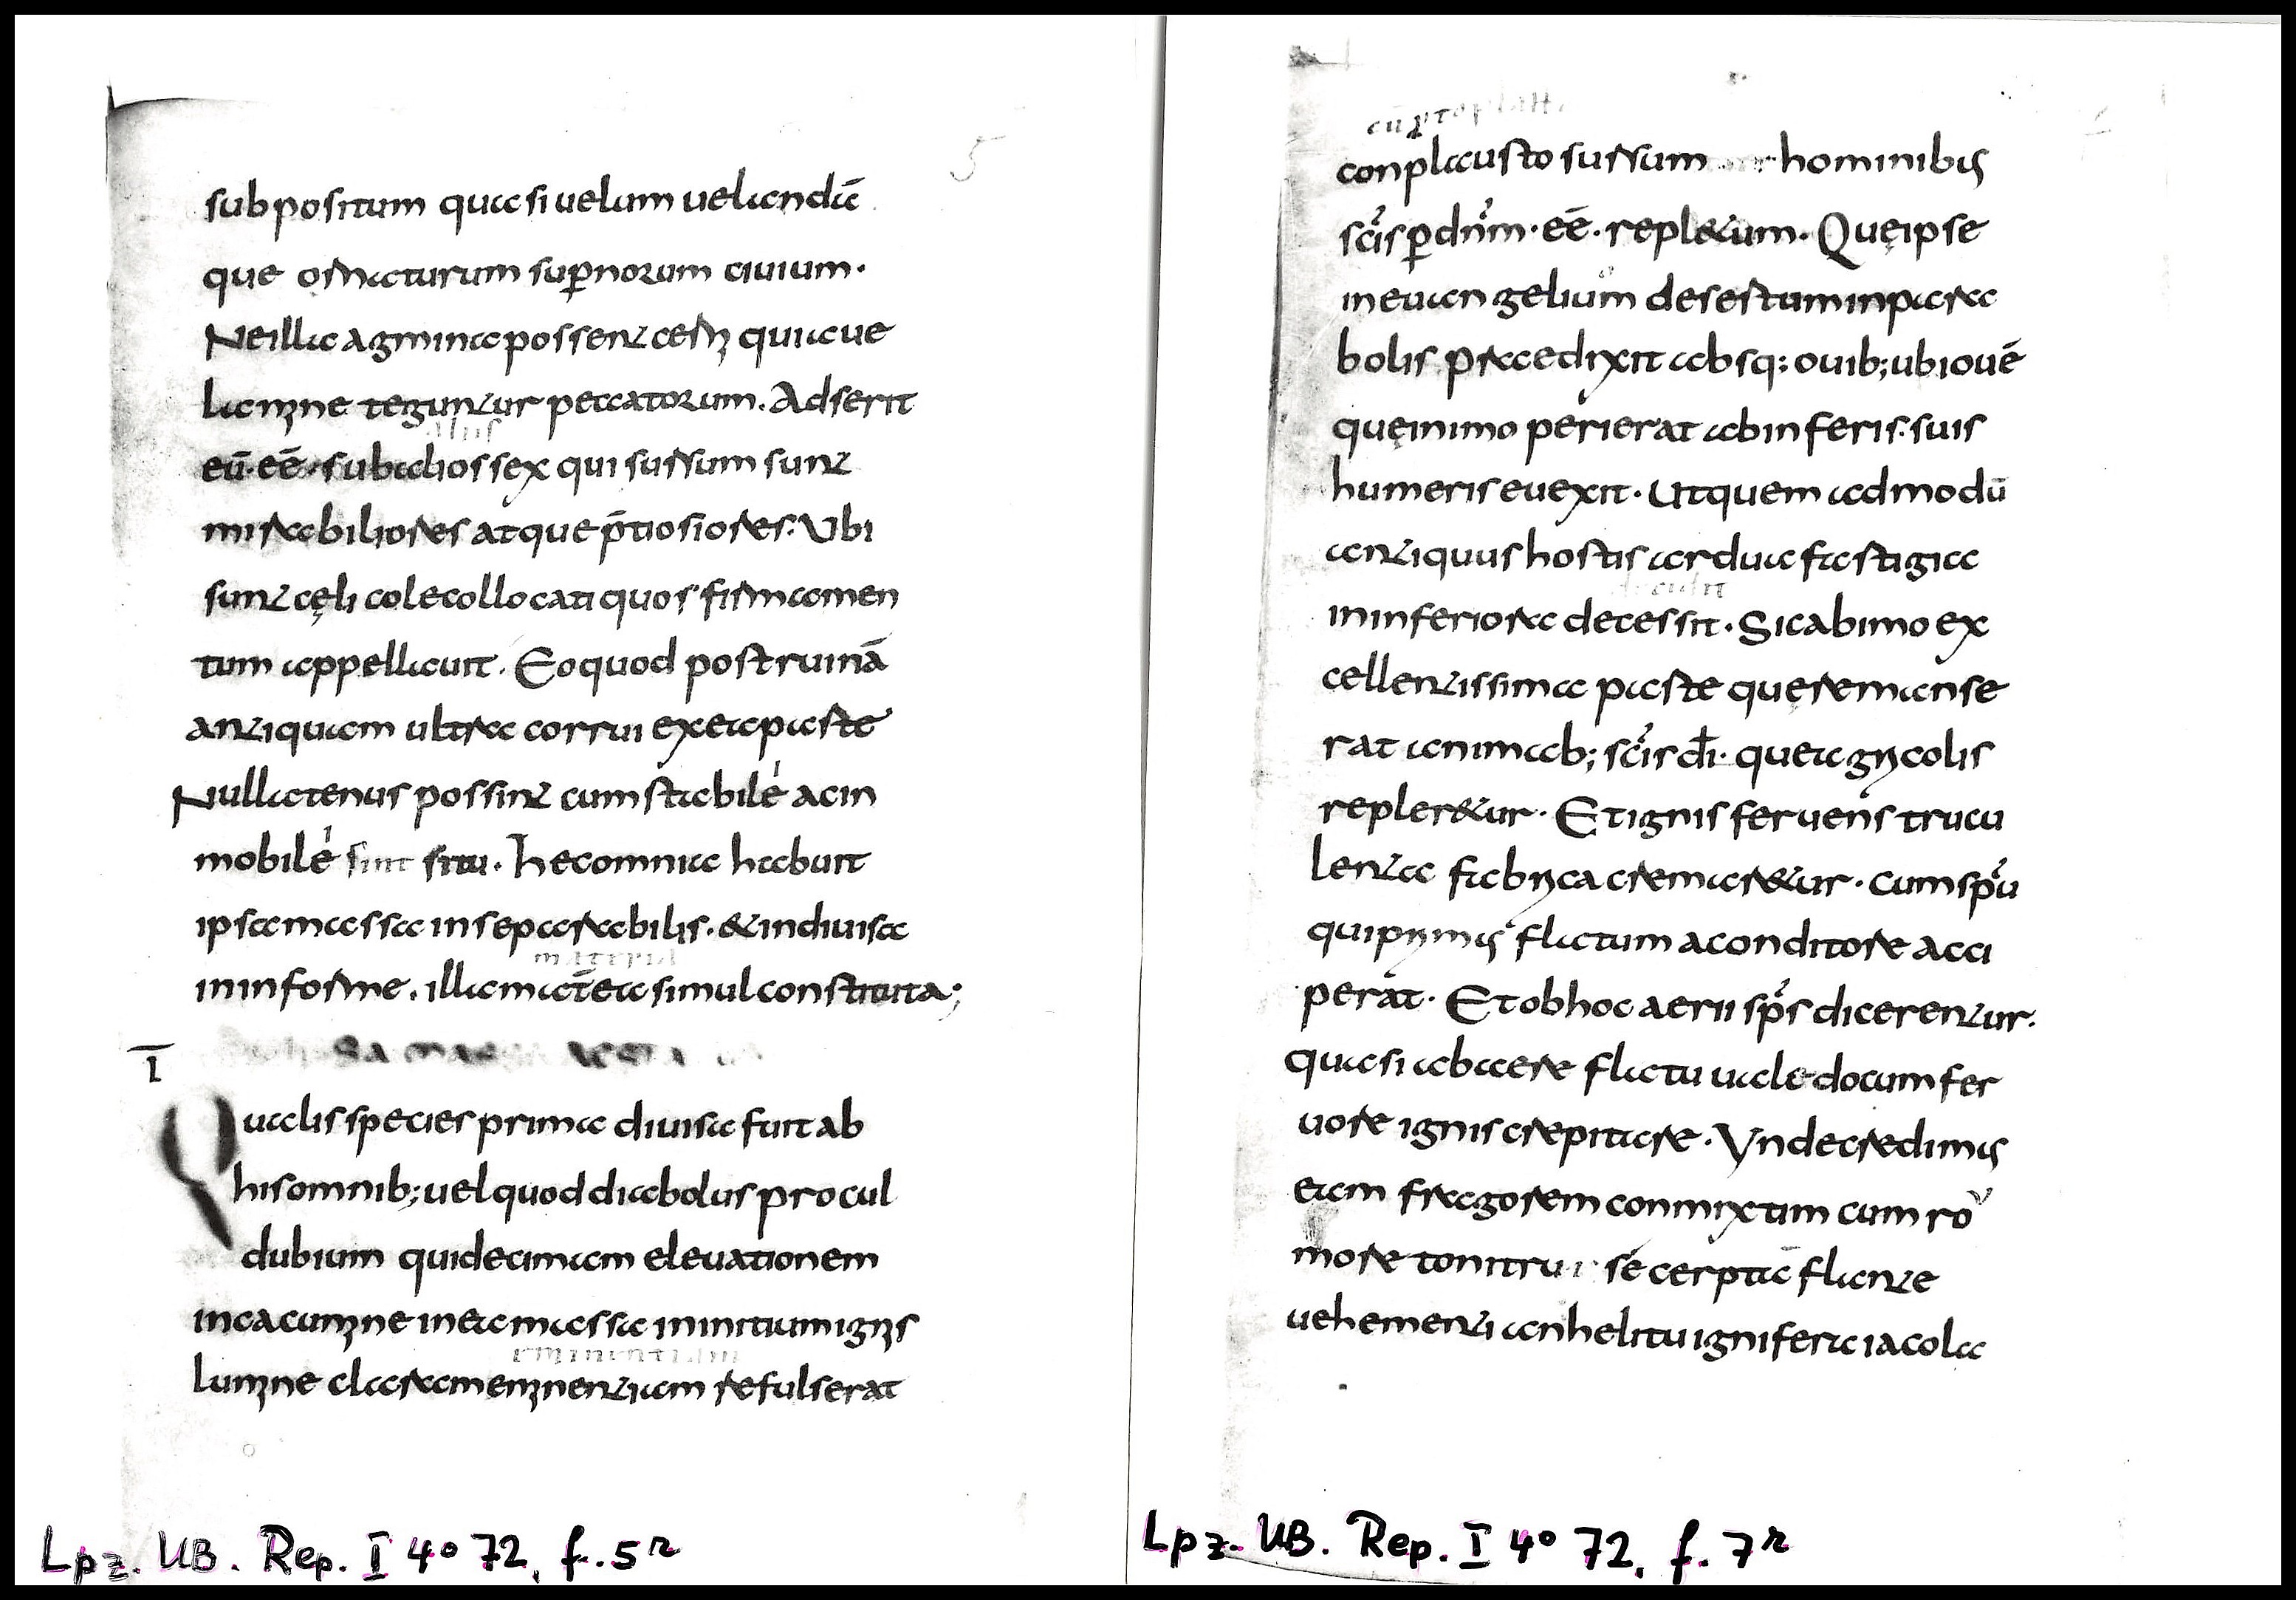 5
subpositum quasi uelum uelandā
que ornaturum suꝑnorum ciuium·
Ne illa agmina possent cerni qui a ue
lamine teguntur peccatorum. Adserit
alius
eū· eē· sub alios sex qui sursum sunt
mirabiliores atque p̄tiosiores: Vbi
sunt cęli cole collocati quos firmamen
tum appellauit. Eo quod post ruinā
antiquam ultra corrui ex ea parte
Nullatenus possint cum stabile ac in
mobile sint situ. hec omnia habuit
ipsa massa inseparabilis· & indiuisa
materia
in informe. illa mat̄ea simul constituta;
I
Qualis species prima diuisa fuit ab
his omnib; uel quod diabolus procul
dubium qui decimam eleuationem
in cacumine in ea massa in initium ignis
eminentiam
lumine clara meminentiam refulserat
Lpz. UB. Rep. I 4° 72, f. 5r
conplaustro sursum hominibꝰ
sc̄is ꝑ dn̄m· eē· repl&um. Que ipse
in euangelium de sestum in para
bolis praedixit absq: ouib; ubi ouē
quę in imo perierat ab inferis· suis
humeris euexit· Ut quem ad modū
antiquus hostis ardua fastigia
in inferiora decessit· Sic ab imo ex
cellentissima parte quę remanse
rat animab; sc̄is dī· que agricolis
repler&ur· Et ignis feruens trucu
lenta fabrica cremar&ur· cum sp̄u
qui primꝰ flatum a conditore acci
perat· Et ob hoc aerii sp̄s dicerentur·
quasi ab aere flatu ualedo cum fer
uore ignis crepitare· Vnde credimꝰ
eam fragorem conmixtim cum ro
more tonitru se cerptā flante
uehementi anhelitu ignifera iacola
Lpz. UB. Rep. I 4° 72, f. 7r